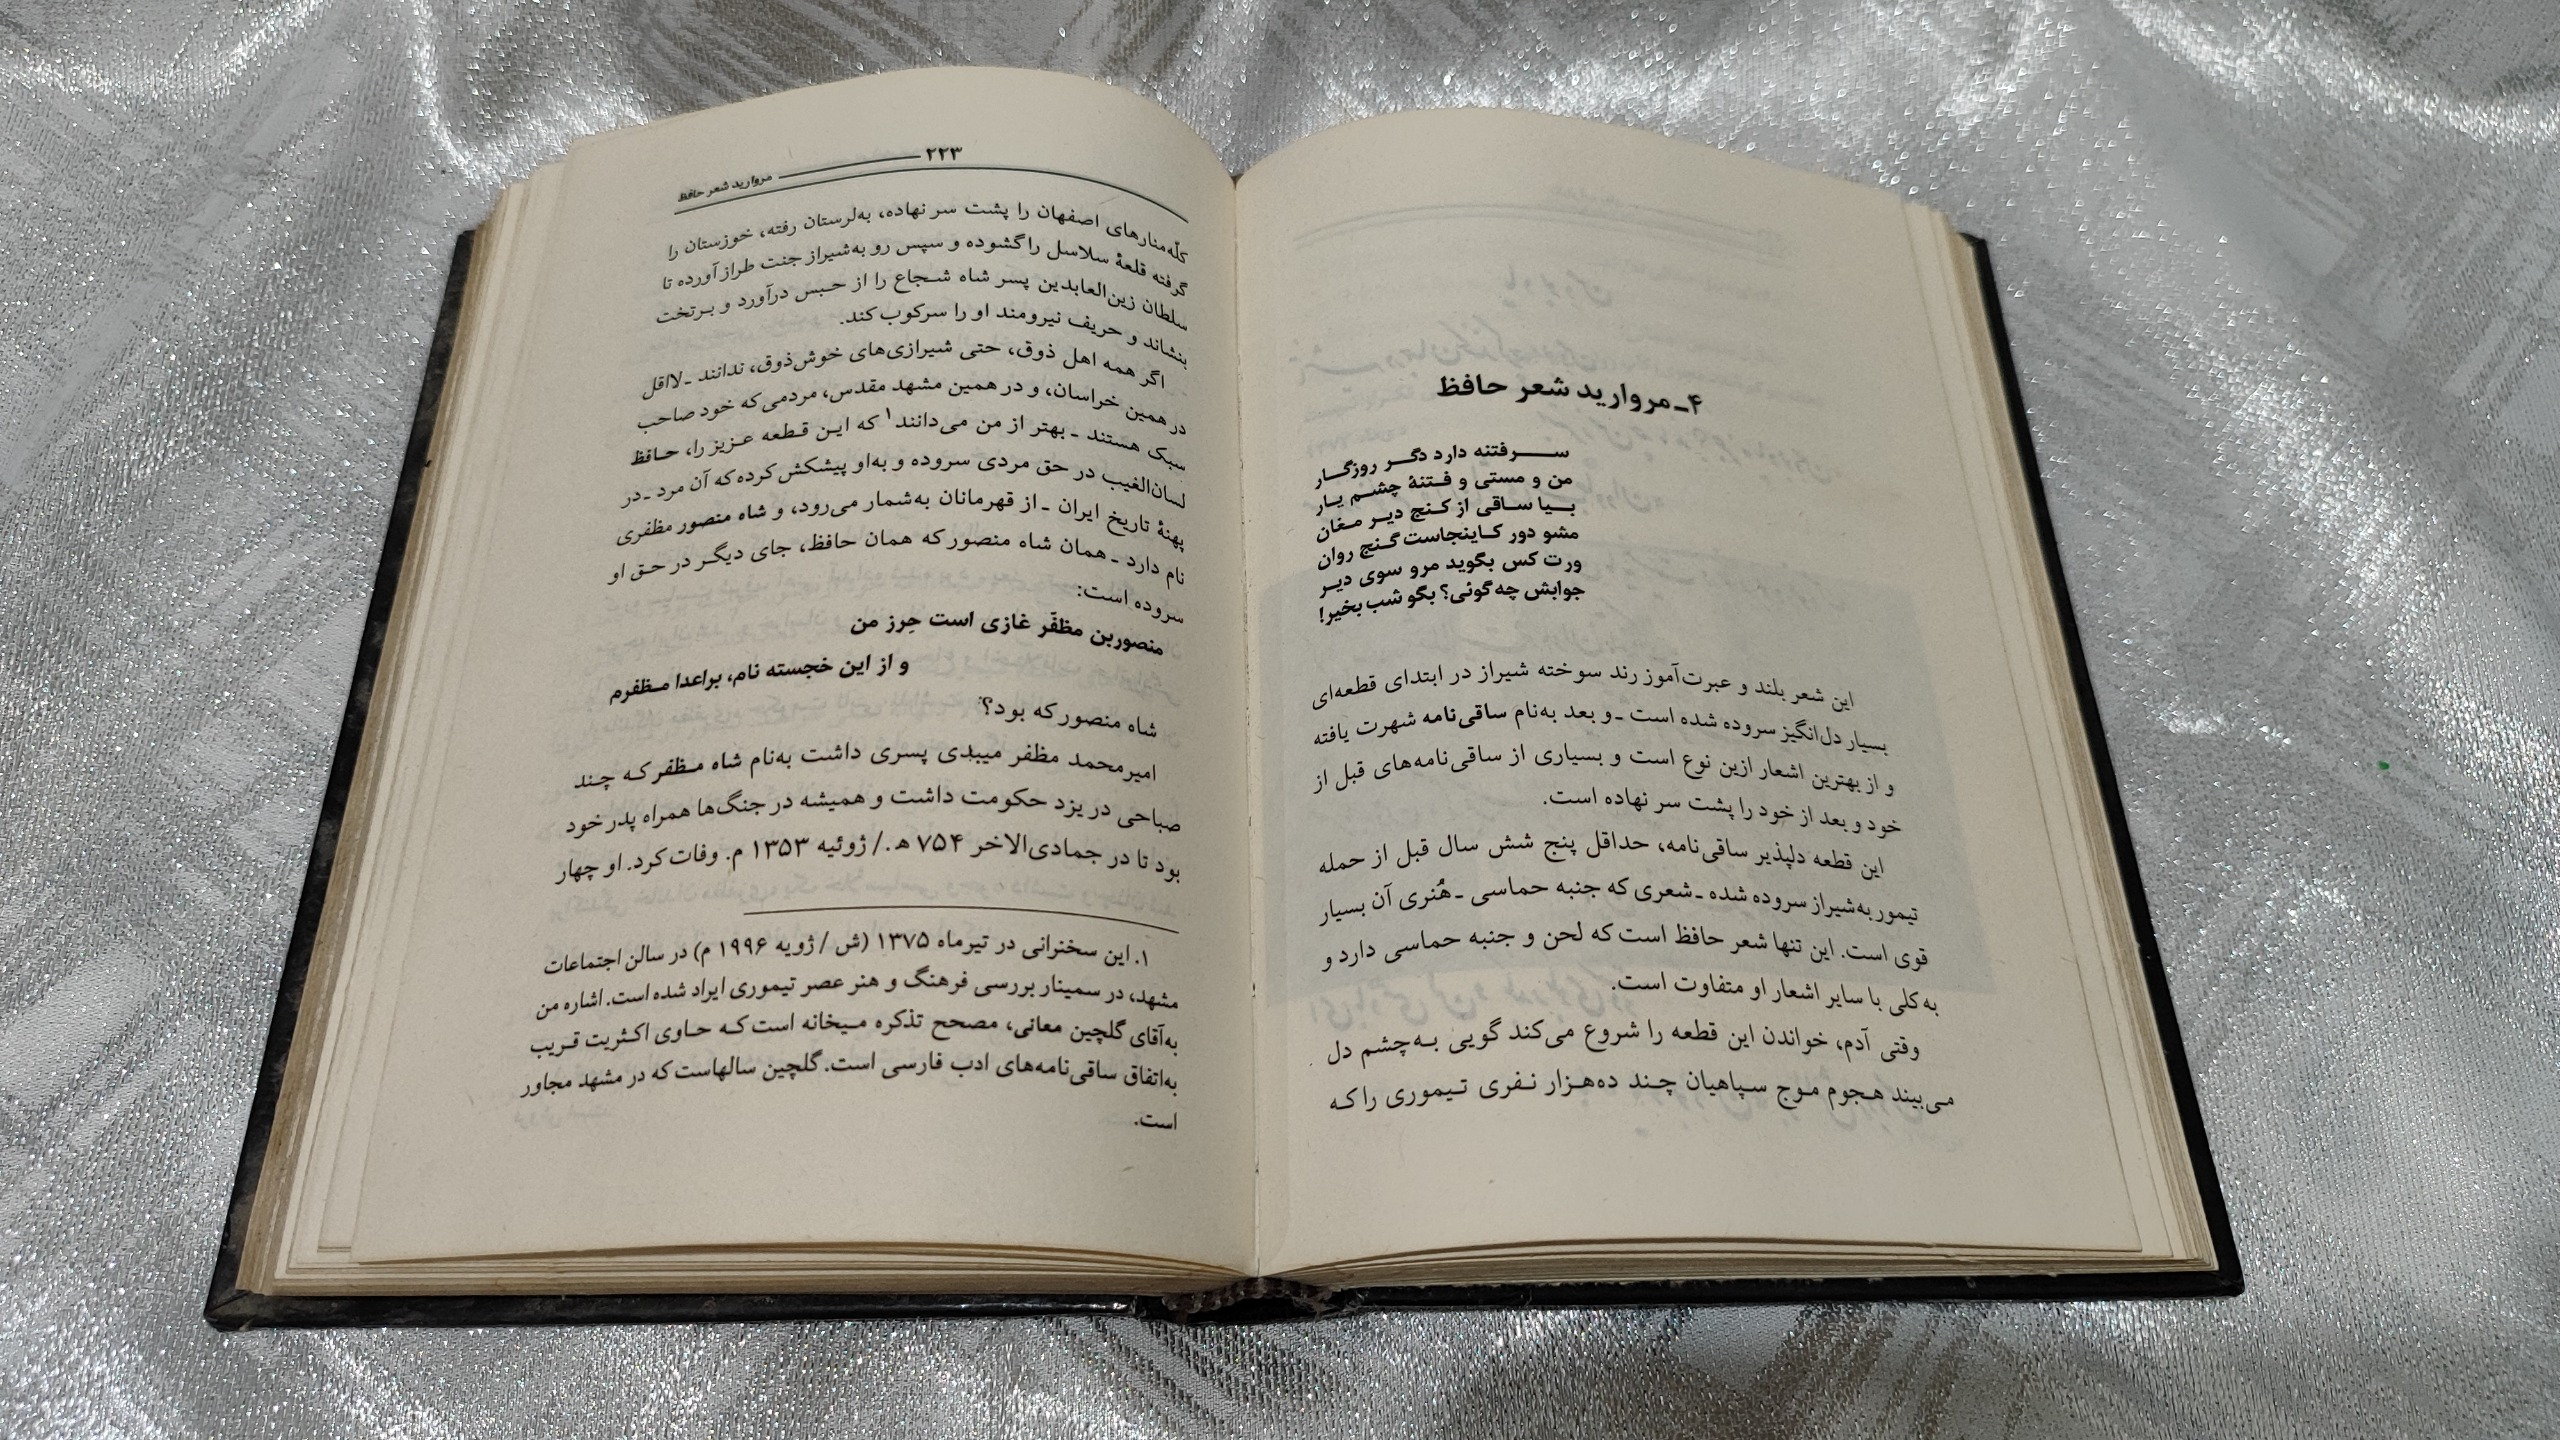 ۴ـ مروارید شعر حافظ
سر فتنه دارد دگر روزگار
من و مستی و فتنهٔ چشم یار
بیا ساقی از کنج دیر مغان
مشو دور کاینجاست گنج روان
ورت کس بگوید مرو سوی دیر
جوابش چه‌گوئی؟ بگو شب بخیر!
این شعر بلند و عبرت‌آموز رند سوخته شیراز در ابتدای قطعه‌ای
بسیار دل‌انگیز سروده شده است ـ و بعد به‌نام ساقی‌نامه شهرت یافته
و از بهترین اشعار ازین نوع است و بسیاری از ساقی‌نامه‌های قبل از
خود و بعد از خود را پشت سر نهاده است.
این قطعه دلپذیر ساقی‌نامه، حداقل پنج شش سال قبل از حمله
تیمور به‌شیراز سروده شده ـ شعری که جنبه حماسی ـ هُنری آن بسیار
قوی است. این تنها شعر حافظ است که لحن و جنبه حماسی دارد و
به‌کلی با سایر اشعار او متفاوت است.
وقتی آدم، خواندن این قطعه را شروع می‌کند گویی به‌چشم دل
می‌بیند هجوم موج سپاهیان چند ده‌هزار نفری تیموری را که
۲۲۳
مروارید شعر حافظ
کلّه‌منارهای اصفهان را پشت سر نهاده، به‌لرستان رفته، خوزستان را
گرفته قلعهٔ سلاسل را گشوده و سپس رو به‌شیراز جنت طراز آورده تا
سلطان زین‌العابدین پسر شاه شجاع را از حبس درآورد و برتخت
بنشاند و حریف نیرومند او را سرکوب کند.
اگر همه اهل ذوق، حتی شیرازی‌های خوش‌ذوق، ندانند ـ لااقل
در همین خراسان، و در همین مشهد مقدس، مردمی که خود صاحب
سبک هستند ـ بهتر از من می‌دانند۱ که این قطعه عزیز را، حافظ
لسان‌الغیب در حق مردی سروده و به‌او پیشکش کرده که آن مرد ـ در
پهنهٔ تاریخ ایران ـ از قهرمانان به‌شمار می‌رود، و شاه منصور مظفری
نام دارد ـ همان شاه منصور که همان حافظ، جای دیگر در حق او
سروده است:
منصوربن مظفّر غازی است حِرز من
و از این خجسته نام، براعدا مظفرم
شاه منصور که بود؟
امیرمحمد مظفر میبدی پسری داشت به‌نام شاه مظفر که چند
صباحی در یزد حکومت داشت و همیشه در جنگ‌ها همراه پدر خود
بود تا در جمادی‌الاخر ۷۵۴ ه‍./ ژوئیه ۱۳۵۳ م. وفات کرد. او چهار
۱. این سخنرانی در تیرماه ۱۳۷۵ (ش / ژویه ۱۹۹۶ م) در سالن اجتماعات
مشهد، در سمینار بررسی فرهنگ و هنر عصر تیموری ایراد شده است. اشاره من
به‌آقای گلچین معانی، مصحح تذکره میخانه است که حاوی اکثریت قریب
به‌اتفاق ساقی‌نامه‌های ادب فارسی است. گلچین سالهاست که در مشهد مجاور
است.